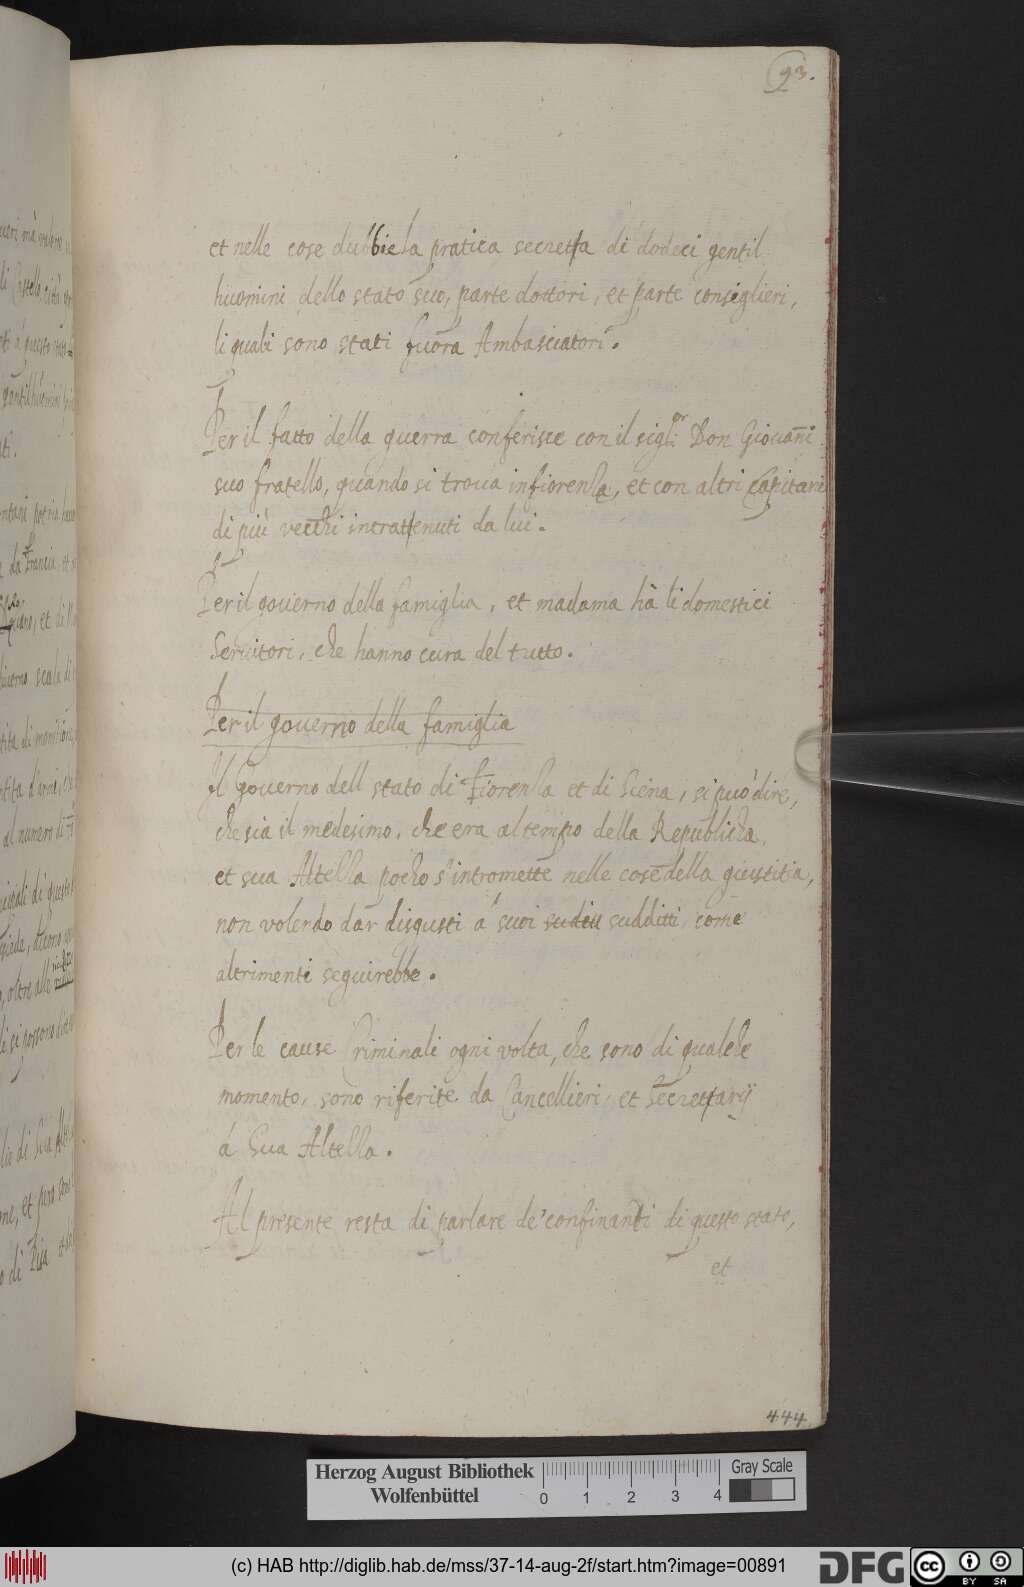 93.
et nelle cose dubbie la pratica secretta di dodeci gentil
huomini dello stato suo, parte dottori, et parte consiglieri,
li quali sono stati fuora Ambasciatori.
Per il fatto della guerra conferisce con il sig.or Don Giovañi
suo fratello, quando si troua in fiorenza, et con altri Capitani
di più vecchi intrattenuti da lui.
Per il gouerno della famiglia, et madama hà li domestici
Seruitori, che hanno cura del tutto.
Per il gouerno della famiglia
Il Gouerno dell stato di Fiorenza et di Siena, si può dire,
che sia il medesimo, che era al tempo della Republicha,
et sua Altezza pocho s'intromette nelle cose della giustitia,
non volendo dar disgusti á suoi sudditti, come
altrimenti seguirebbe.
Per le cause Criminali ogni volta, che sono di qualche
momento, sono riferite da Cancellieri, et Secrettarij
á Sua Altezza.
Al presente resta di parlare de' confinanti di questo stato,
et
444
Herzog August Bibliothek
Wolfenbüttel
0 1 2 3 4
Gray Scale
(c) HAB http://diglib.hab.de/mss/37-14-aug-2f/start.htm?image=00891
DFG
cc BY SA